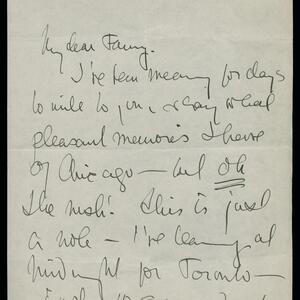 My dear Fanny.
I've been meaning for days
to write to you, & say what
pleasant memories I have
of Chicago — but oh
the rush! This is just
a note — I've leaving at
midnight for Toronto —